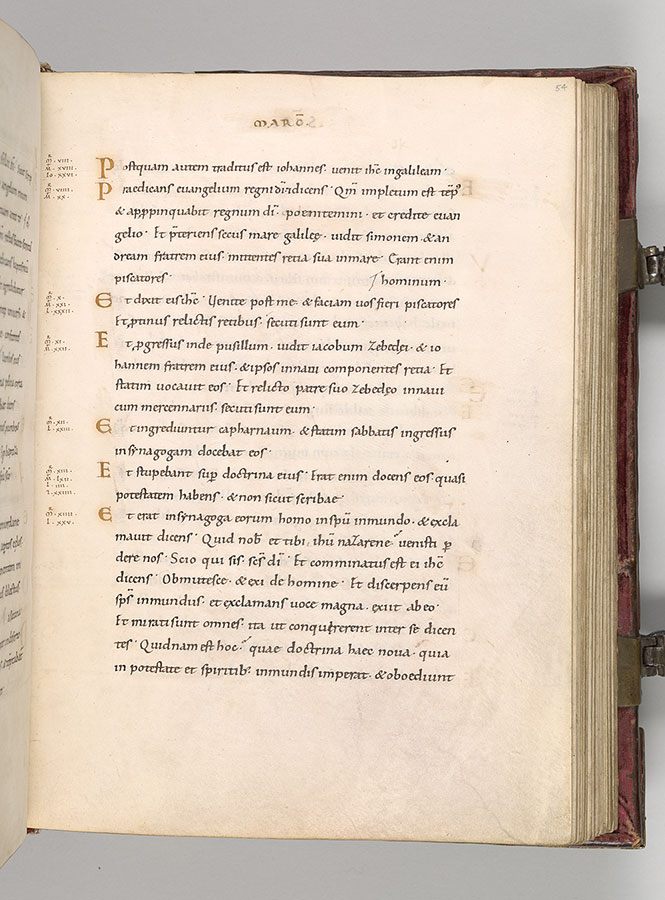 54
MARC̄
Postquam autem traditus est iohannes· venit ih̄c ingalileam·
Praedicans euangelium regni dī· dicens· Qm̄ impletum est tēpꝰ
& appropinquabit regnum dī· poenitemini· et credite euan
gelio· Et p̄teriens secus mare galileę· uidit simonem & an
dream fratrem eius mittentes retia sua inmare· Erant enim
piscatores· / hominum·
Et dixit eis ih̄c· Venite post me· & faciam uos fieri piscatores
Et ꝓtinus relictis retibus· secuti sunt eum·
Et ꝓgressus inde pusillum· uidit iacobum Zebedei· & io
hannem fratrem eius· & ipsos innaui componentes retia· Et
statim uocauit eos· Et relicto patre suo Zebedęo innaui
cum mercennariis· secuti sunt eum·
Et ingrediuntur capharnaum· & statim sabbatis ingressus
insynagogam docebat eos·
Et stupebant sup̄ doctrina eius· Erat enim docens eos· quasi
potestatem habens· & non sicut scribae·
Et erat insynagoga eorum homo inspū inmundo· & excla
mauit dicens· Quid nob̄ et tibi ih̄u naZarene· uenisti ꝑ
dere nos· Scio qui sis· sc̄s dī· Et comminatus est ei ih̄c
dicens· Obmutesce· & exi de homine· Et discerpens eū
sp̄s inmundus· et exclamans uoce magna· exiit ab eo·
Et mirati sunt omnes· ita ut conquirerent inter se dicen
tes· Quidnam est hoc· quae doctrina haec noua· quia
in potestate et spiritib; inmundis imperat· & oboediunt
R̄
M̄· VIII·
M̄· XVIII·
IO· XXVI·
R̄
M̄· VIIII·
M̄· XX·
R̄
M̄· X·
M̄· XXI·
L· XXXII·
R̄
M̄· XI·
M̄· XXII·
R̄
M̄· XII·
L· XXIII·
R̄
M̄· XIII·
M̄· LXII·
L· IIII·
L· XXIIII·
R̄
M̄· XIIII·
L· XXV·